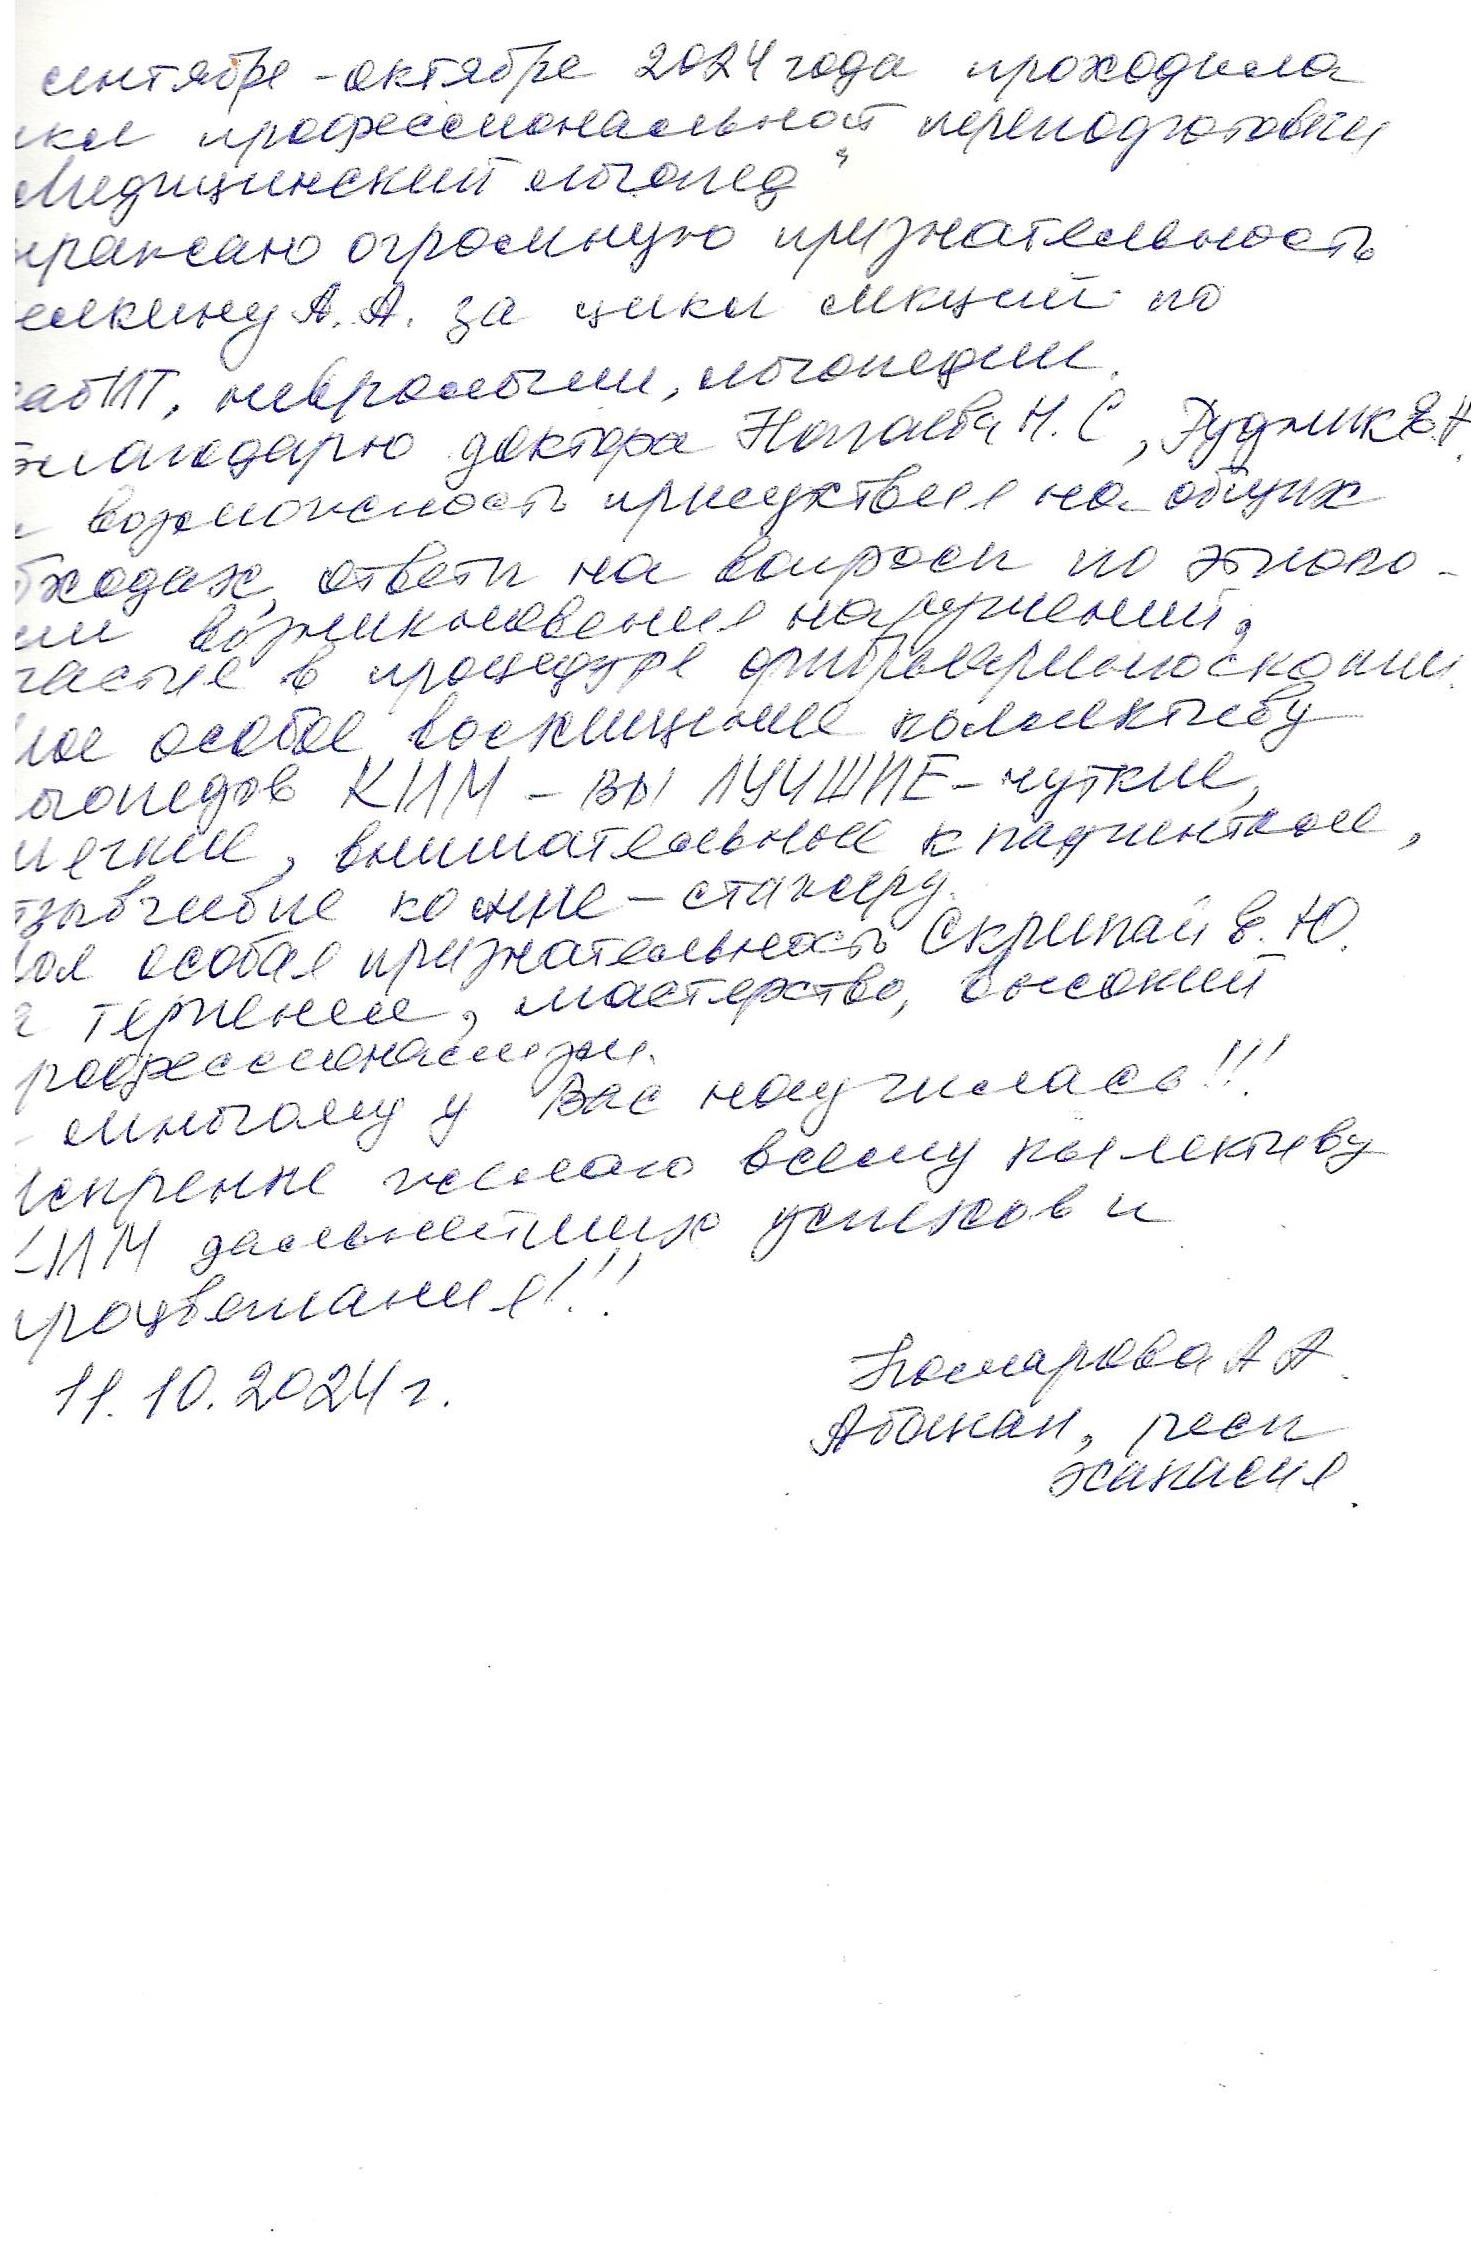 сентябре - октябре 2024 года проходила
икл профессиональной переподготовки
Медицинский логопед"
ыражаю огромную признательность
елкину А. А. за цикл лекций по
еабИТ, неврологии, логопедии.
Благодарю доктора Н. С, Рудник Е.Н.
возможность присутствия на общих
бходах, ответы на вопросы по этиоло-
гии возникновения нарушений,
частие в процедуре фиброларингоскопии.
Мое особое восхищение коллективу
логопедов КИМ - вы ЛУЧШИЕ - чуткие,
мягкие, внимательные к пациентам,
тзывчивые ко мне - стажеру.
Моя особая признательность Скрипай Е. Ю.
а терпение, мастерство, высокий
рофессионализм.
многому у Вас научилась!!!
Искренне желаю всему коллективу
КИМ дальнейших успехов и
процветания!!!
11.10.2024 г.
Комарова А А.
Абакан, респ
Хакасия.